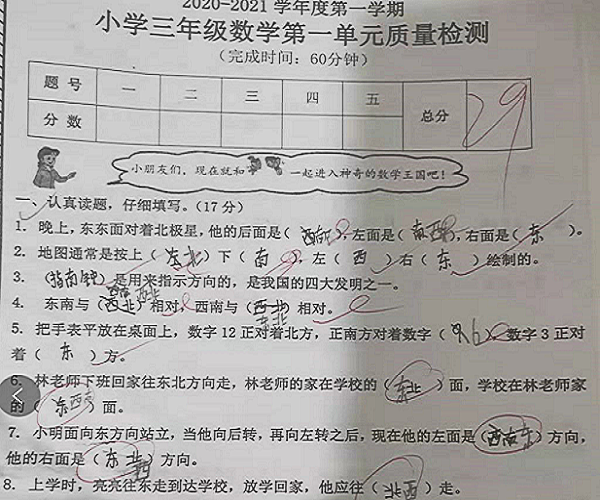 2020-2021 学年度第一学期
小学三年级数学第一单元质量检测
(完成时间：60分钟)
题号 一 二 三 四 五 总分 29
分数
小朋友们，现在就和 一起进入神奇的数学王国吧！
一、认真读题，仔细填写。(17分)
1. 晚上，东东面对着北极星，他的后面是( )，左面是( 西 )，右面是( 东 )。
2. 地图通常是按上( 北 )下( 南 )，左( 西 )右( 东 )绘制的。
3. (指南针)是用来指示方向的，是我国的四大发明之一。
4. 东南与(西北)相对，西南与( )相对。
5. 把手表平放在桌面上，数字12正对着北方，正南方对着数字( 6 )，数字3正对
着( 东 )方。
6. 林老师下班回家往东北方向走，林老师的家在学校的( 东北 )面，学校在林老师家
的( )面。
7. 小明面向东方向站立，当他向后转，再向左转之后，现在他的左面是( )方向，
他的右面是( )方向。
8. 上学时，亮亮往东走到达学校，放学回家，他应往( )走。